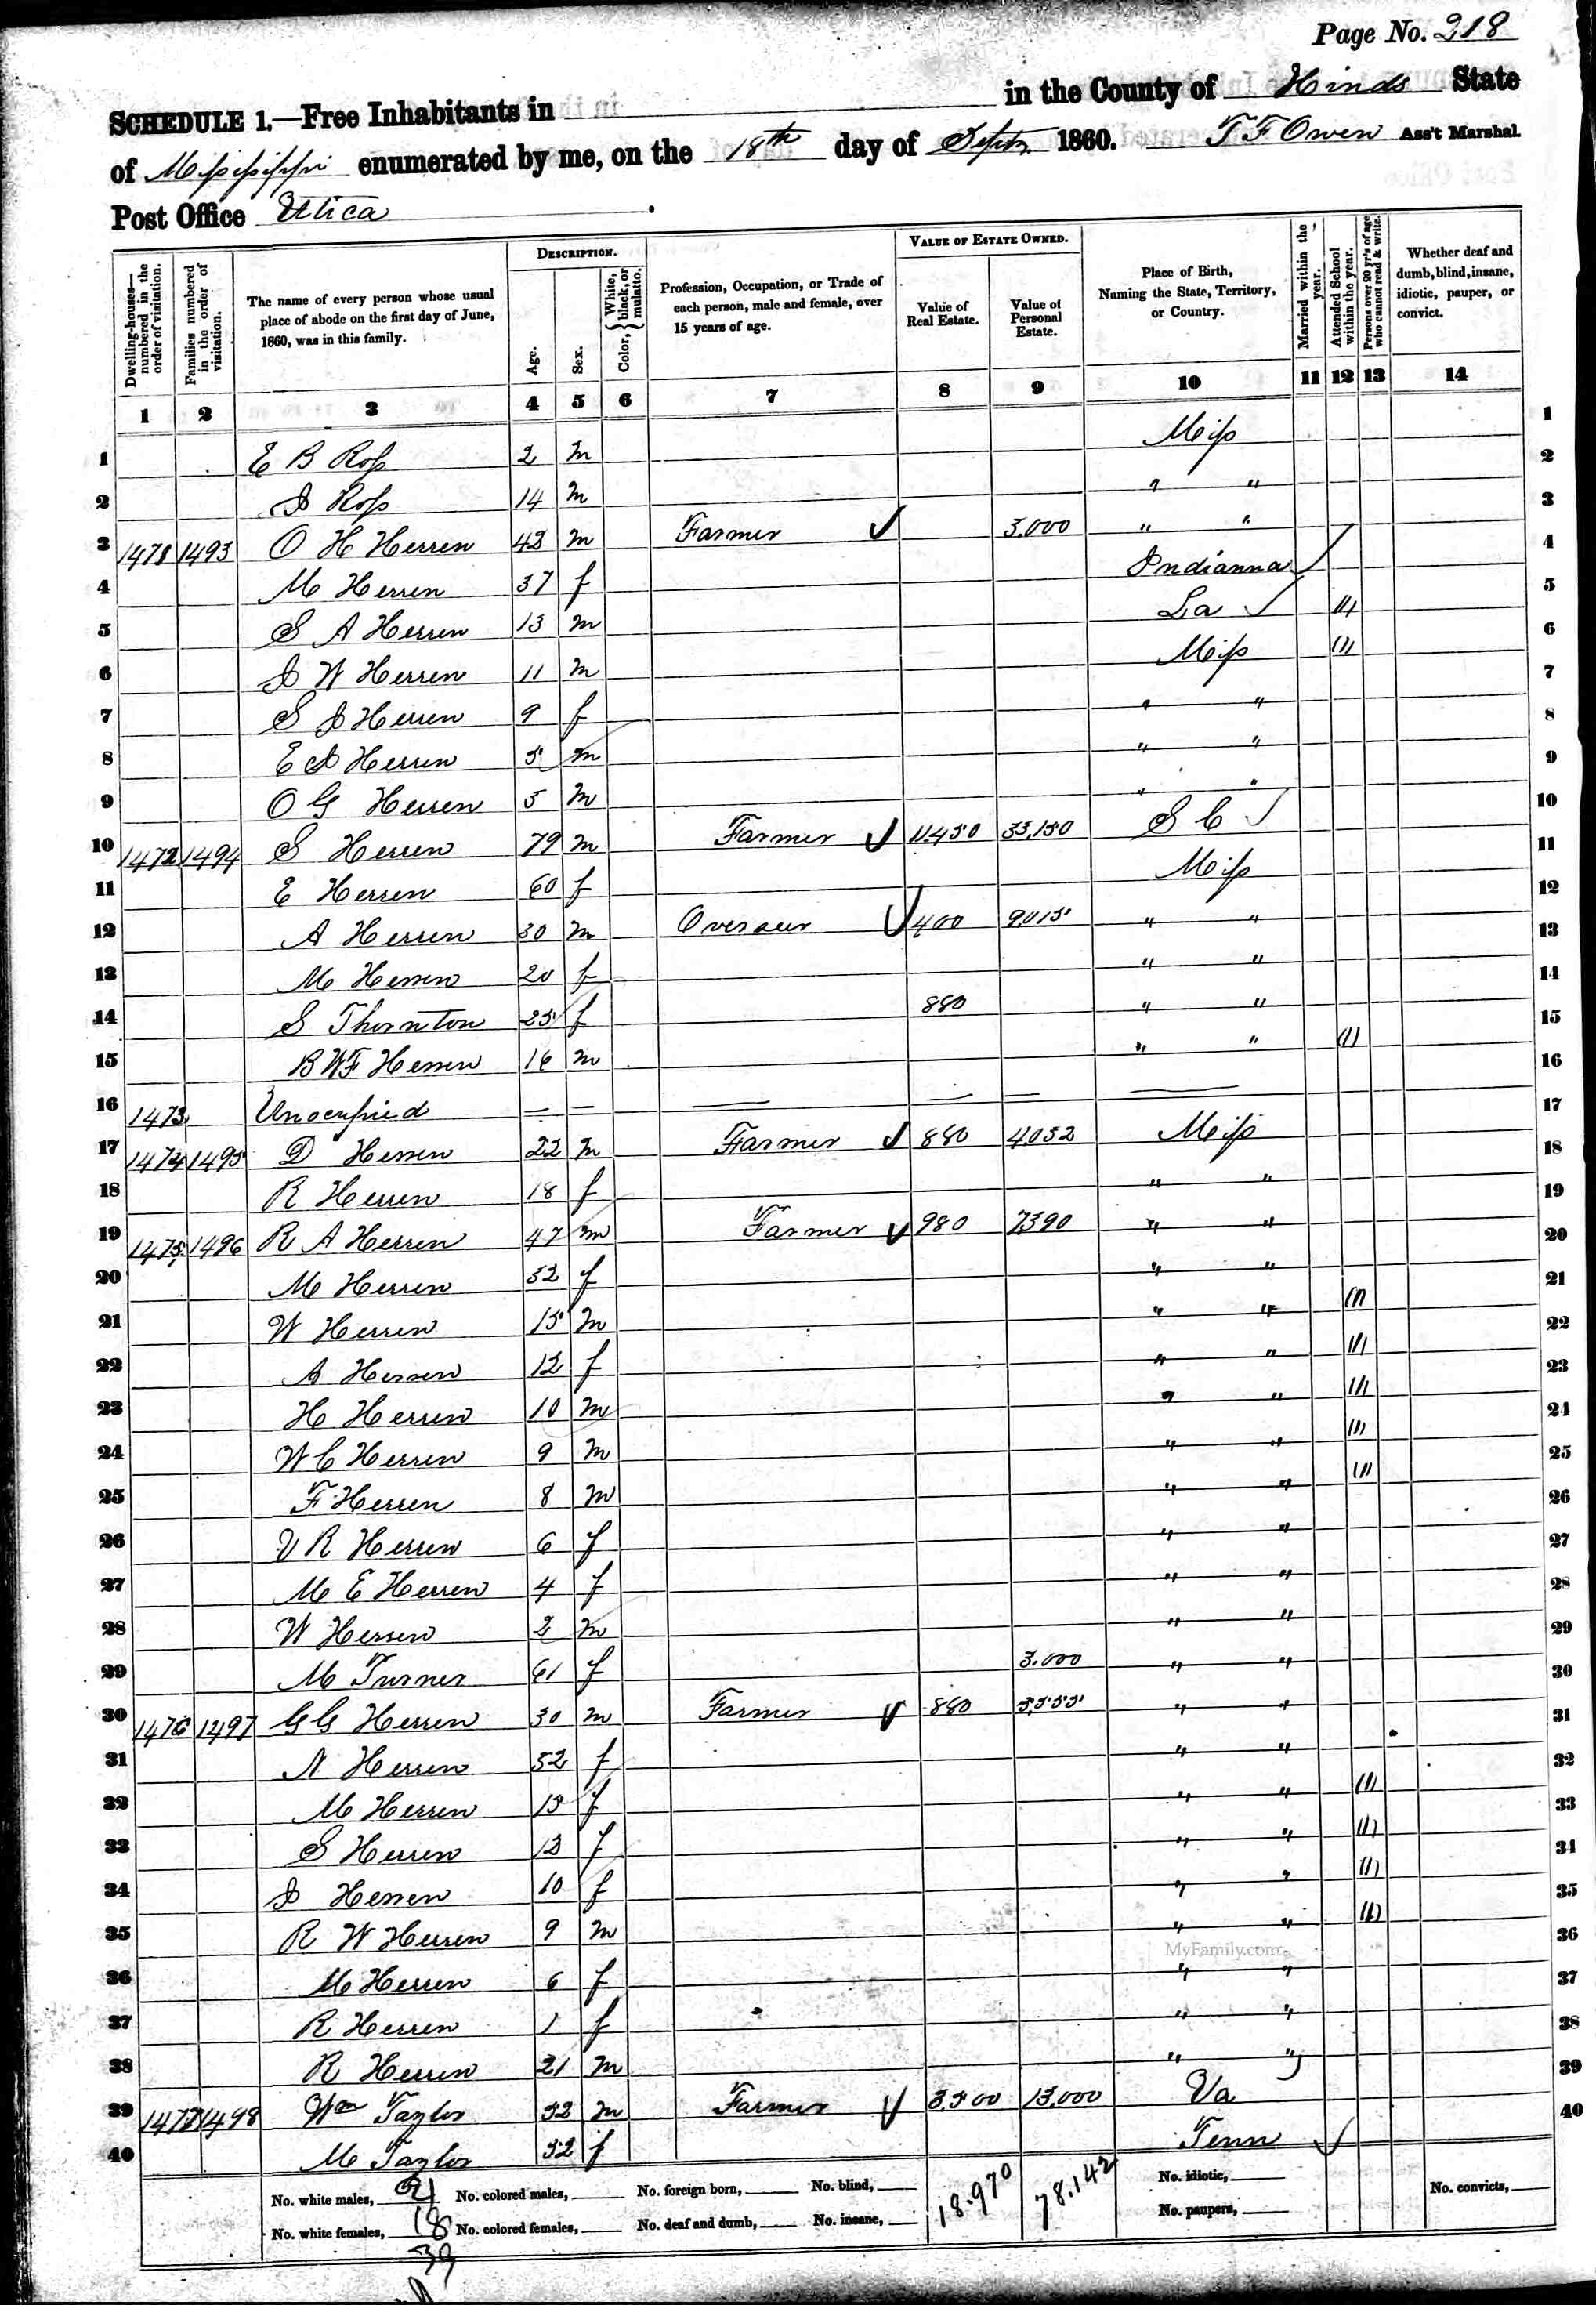 Page No. 218
SCHEDULE 1.—Free Inhabitants in in the County of Hinds State
of Mississippi enumerated by me, on the 18th day of Septr 1860. T F Owen Ass't Marshal.
Post Office Utica
DESCRIPTION. VALUE OF ESTATE OWNED.
Dwelling-houses—numbered in the order of visitation. Families numbered in the order of visitation. The name of every person whose usual place of abode on the first day of June, 1860, was in this family. Age. Sex. Color, { White, black, or mulatto. Profession, Occupation, or Trade of each person, male and female, over 15 years of age. Value of Real Estate. Value of Personal Estate. Place of Birth, Naming the State, Territory, or Country. Married within the year. Attended School within the year. Persons over 20 yr's of age who cannot read & write. Whether deaf and dumb, blind, insane, idiotic, pauper, or convict.
1 2 3 4 5 6 7 8 9 10 11 12 13 14
1 E B Ross 2 m Miss 1
2 J Ross 14 m " " 2
3 1471 1493 O H Herren 43 m Farmer 3,000 " " 3
4 M Herren 37 f Indianna 4
5 S A Herren 13 m La /// 5
6 J W Herren 11 m Miss /// 6
7 S J Herren 9 f " " 7
8 E J Herren 5 m " " 8
9 O G Herren 5 m " " 9
10 1472 1494 S Herren 79 m Farmer 11,450 33,150 S C 10
11 E Herren 60 f Miss 11
12 A Herren 30 m Overseer 400 9,015 " " 12
13 M Herren 20 f " " 13
14 S Thornton 25 f 880 " " 14
15 B W F Herren 16 m " " /// 15
16 1473 Unocupied — — — — — — 16
17 1474 1495 D Herren 22 m Farmer 880 4032 Miss 17
18 R Herren 18 f " " 18
19 1475 1496 R A Herren 47 m Farmer 980 7390 " " 19
20 M Herren 32 f " " 20
21 W Herren 15 m " " /// 21
22 A Herren 12 f " " /// 22
23 H Herren 10 m " " /// 23
24 W C Herren 9 m " " /// 24
25 F Herren 8 m " " /// 25
26 V R Herren 6 f " " 26
27 M E Herren 4 f " " 27
28 W Herren 2 m " " 28
29 M Turner 61 f 3.000 " " 29
30 1476 1497 G G Herren 30 m Farmer 880 5,555 " " 30
31 N Herren 32 f " " 31
32 M Herren 13 f " " /// 32
33 S Herren 13 f " " /// 33
34 J Herren 10 f " " /// 34
35 R W Herren 9 m " " /// 35
MyFamily.com
36 M Herren 6 f " " 36
37 R Herren 1 f " " 37
38 R Herren 21 m " " 38
39 1477 1498 Wm Taylor 32 m Farmer 3,500 13,000 Va 39
40 M Taylor 32 f Tenn 40
No. white males, 21 No. colored males, No. foreign born, No. blind, 18.970 78.142 No. idiotic, No. convicts,
No. white females, 18 No. colored females, No. deaf and dumb, No. insane, No. paupers,
39